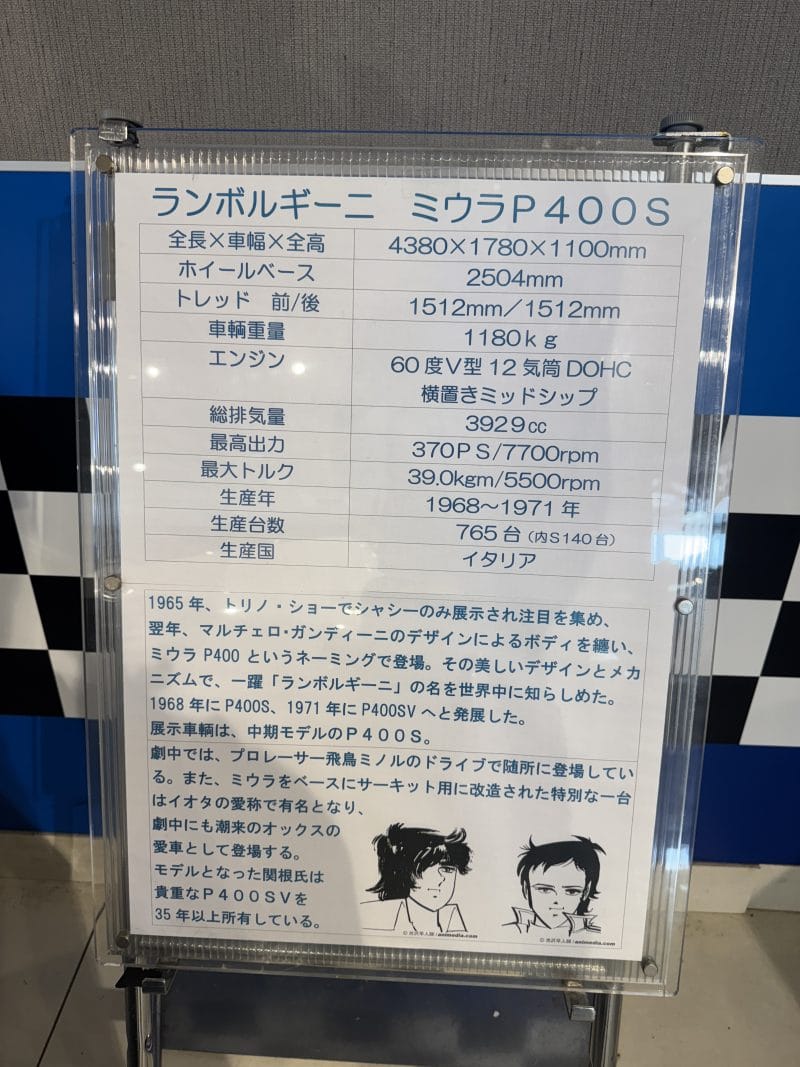 ランボルギーニ　ミウラP400S
全長×車幅×全高 4380×1780×1100mm
ホイールベース 2504mm
トレッド　前/後 1512mm／1512mm
車輌重量 1180kg
エンジン 60度V型12気筒DOHC
横置きミッドシップ
総排気量 3929cc
最高出力 370PS/7700rpm
最大トルク 39.0kgm/5500rpm
生産年 1968～1971年
生産台数 765台（内S140台）
生産国 イタリア
1965年、トリノ・ショーでシャシーのみ展示され注目を集め、
翌年、マルチェロ・ガンディーニのデザインによるボディを纏い、
ミウラP400というネーミングで登場。その美しいデザインとメカ
ニズムで、一躍「ランボルギーニ」の名を世界中に知らしめた。
1968年にP400S、1971年にP400SVへと発展した。
展示車輌は、中期モデルのP400S。
劇中では、プロレーサー飛鳥ミノルのドライブで随所に登場してい
る。また、ミウラをベースにサーキット用に改造された特別な一台
はイオタの愛称で有名となり、
劇中にも潮来のオックスの
愛車として登場する。
モデルとなった関根氏は
貴重なP400SVを
35年以上所有している。
© 池沢早人師 / animedia.com
© 池沢早人師 / animedia.com